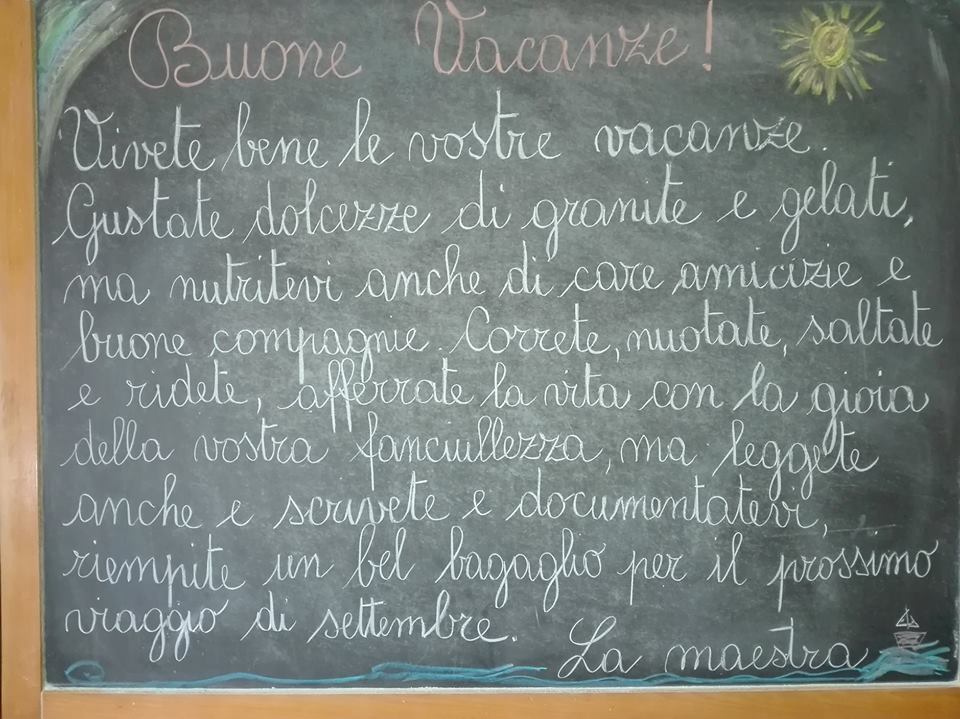 Buone Vacanze!
Vivete bene le vostre vacanze.
Gustate dolcezze di granite e gelati,
ma nutritevi anche di care amicizie e
buone compagnie. Correte, nuotate, saltate
e ridete, afferrate la vita con la gioia
della vostra fanciullezza, ma leggete
anche e scrivete e documentatevi,
riempite un bel bagaglio per il prossimo
viaggio di settembre.
La maestra